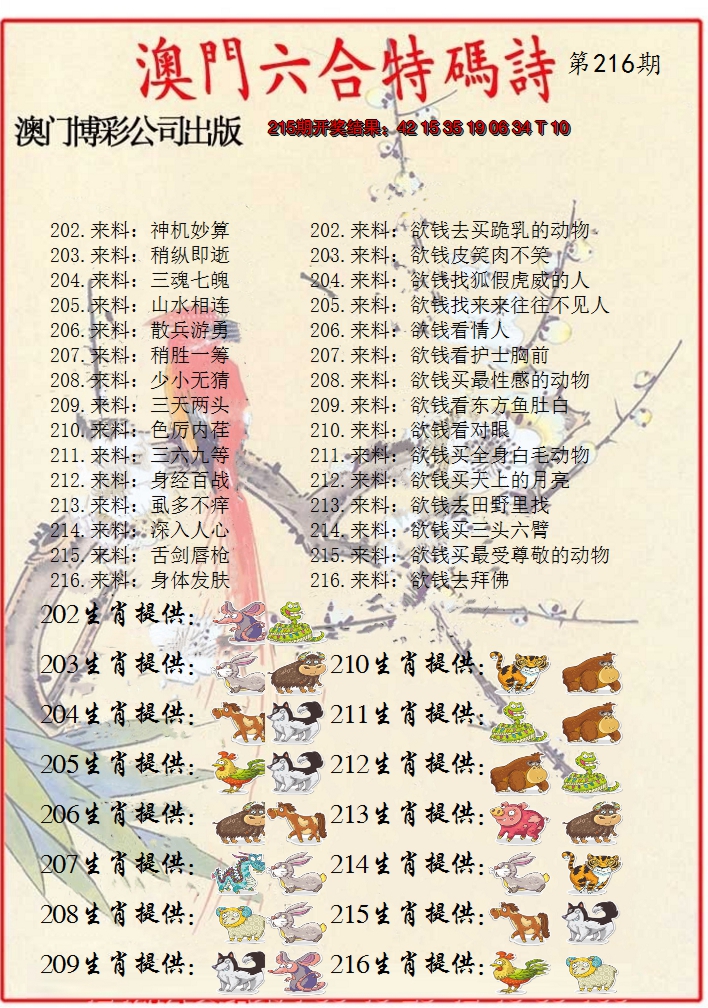 澳門六合特碼詩 第216期
澳门博彩公司出版 215期开奖结果：42 15 35 19 06 34 T 10
202.来料：神机妙算 202.来料：欲钱去买跪乳的动物
203.来料：稍纵即逝 203.来料：欲钱皮笑肉不笑
204.来料：三魂七魄 204.来料：欲钱找狐假虎威的人
205.来料：山水相连 205.来料：欲钱找来来往往不见人
206.来料：散兵游勇 206.来料：欲钱看情人
207.来料：稍胜一筹 207.来料：欲钱看护士胸前
208.来料：少小无猜 208.来料：欲钱买最性感的动物
209.来料：三天两头 209.来料：欲钱看东方鱼肚白
210.来料：色厉内荏 210.来料：欲钱看对眼
211.来料：三六九等 211.来料：欲钱买全身白毛动物
212.来料：身经百战 212.来料：欲钱买天上的月亮
213.来料：虱多不痒 213.来料：欲钱去田野里找
214.来料：深入人心 214.来料：欲钱买三头六臂
215.来料：舌剑唇枪 215.来料：欲钱买最受尊敬的动物
216.来料：身体发肤 216.来料：欲钱去拜佛
202生肖提供：
203生肖提供： 210生肖提供：
204生肖提供： 211生肖提供：
205生肖提供： 212生肖提供：
206生肖提供： 213生肖提供：
207生肖提供： 214生肖提供：
208生肖提供： 215生肖提供：
209生肖提供： 216生肖提供：